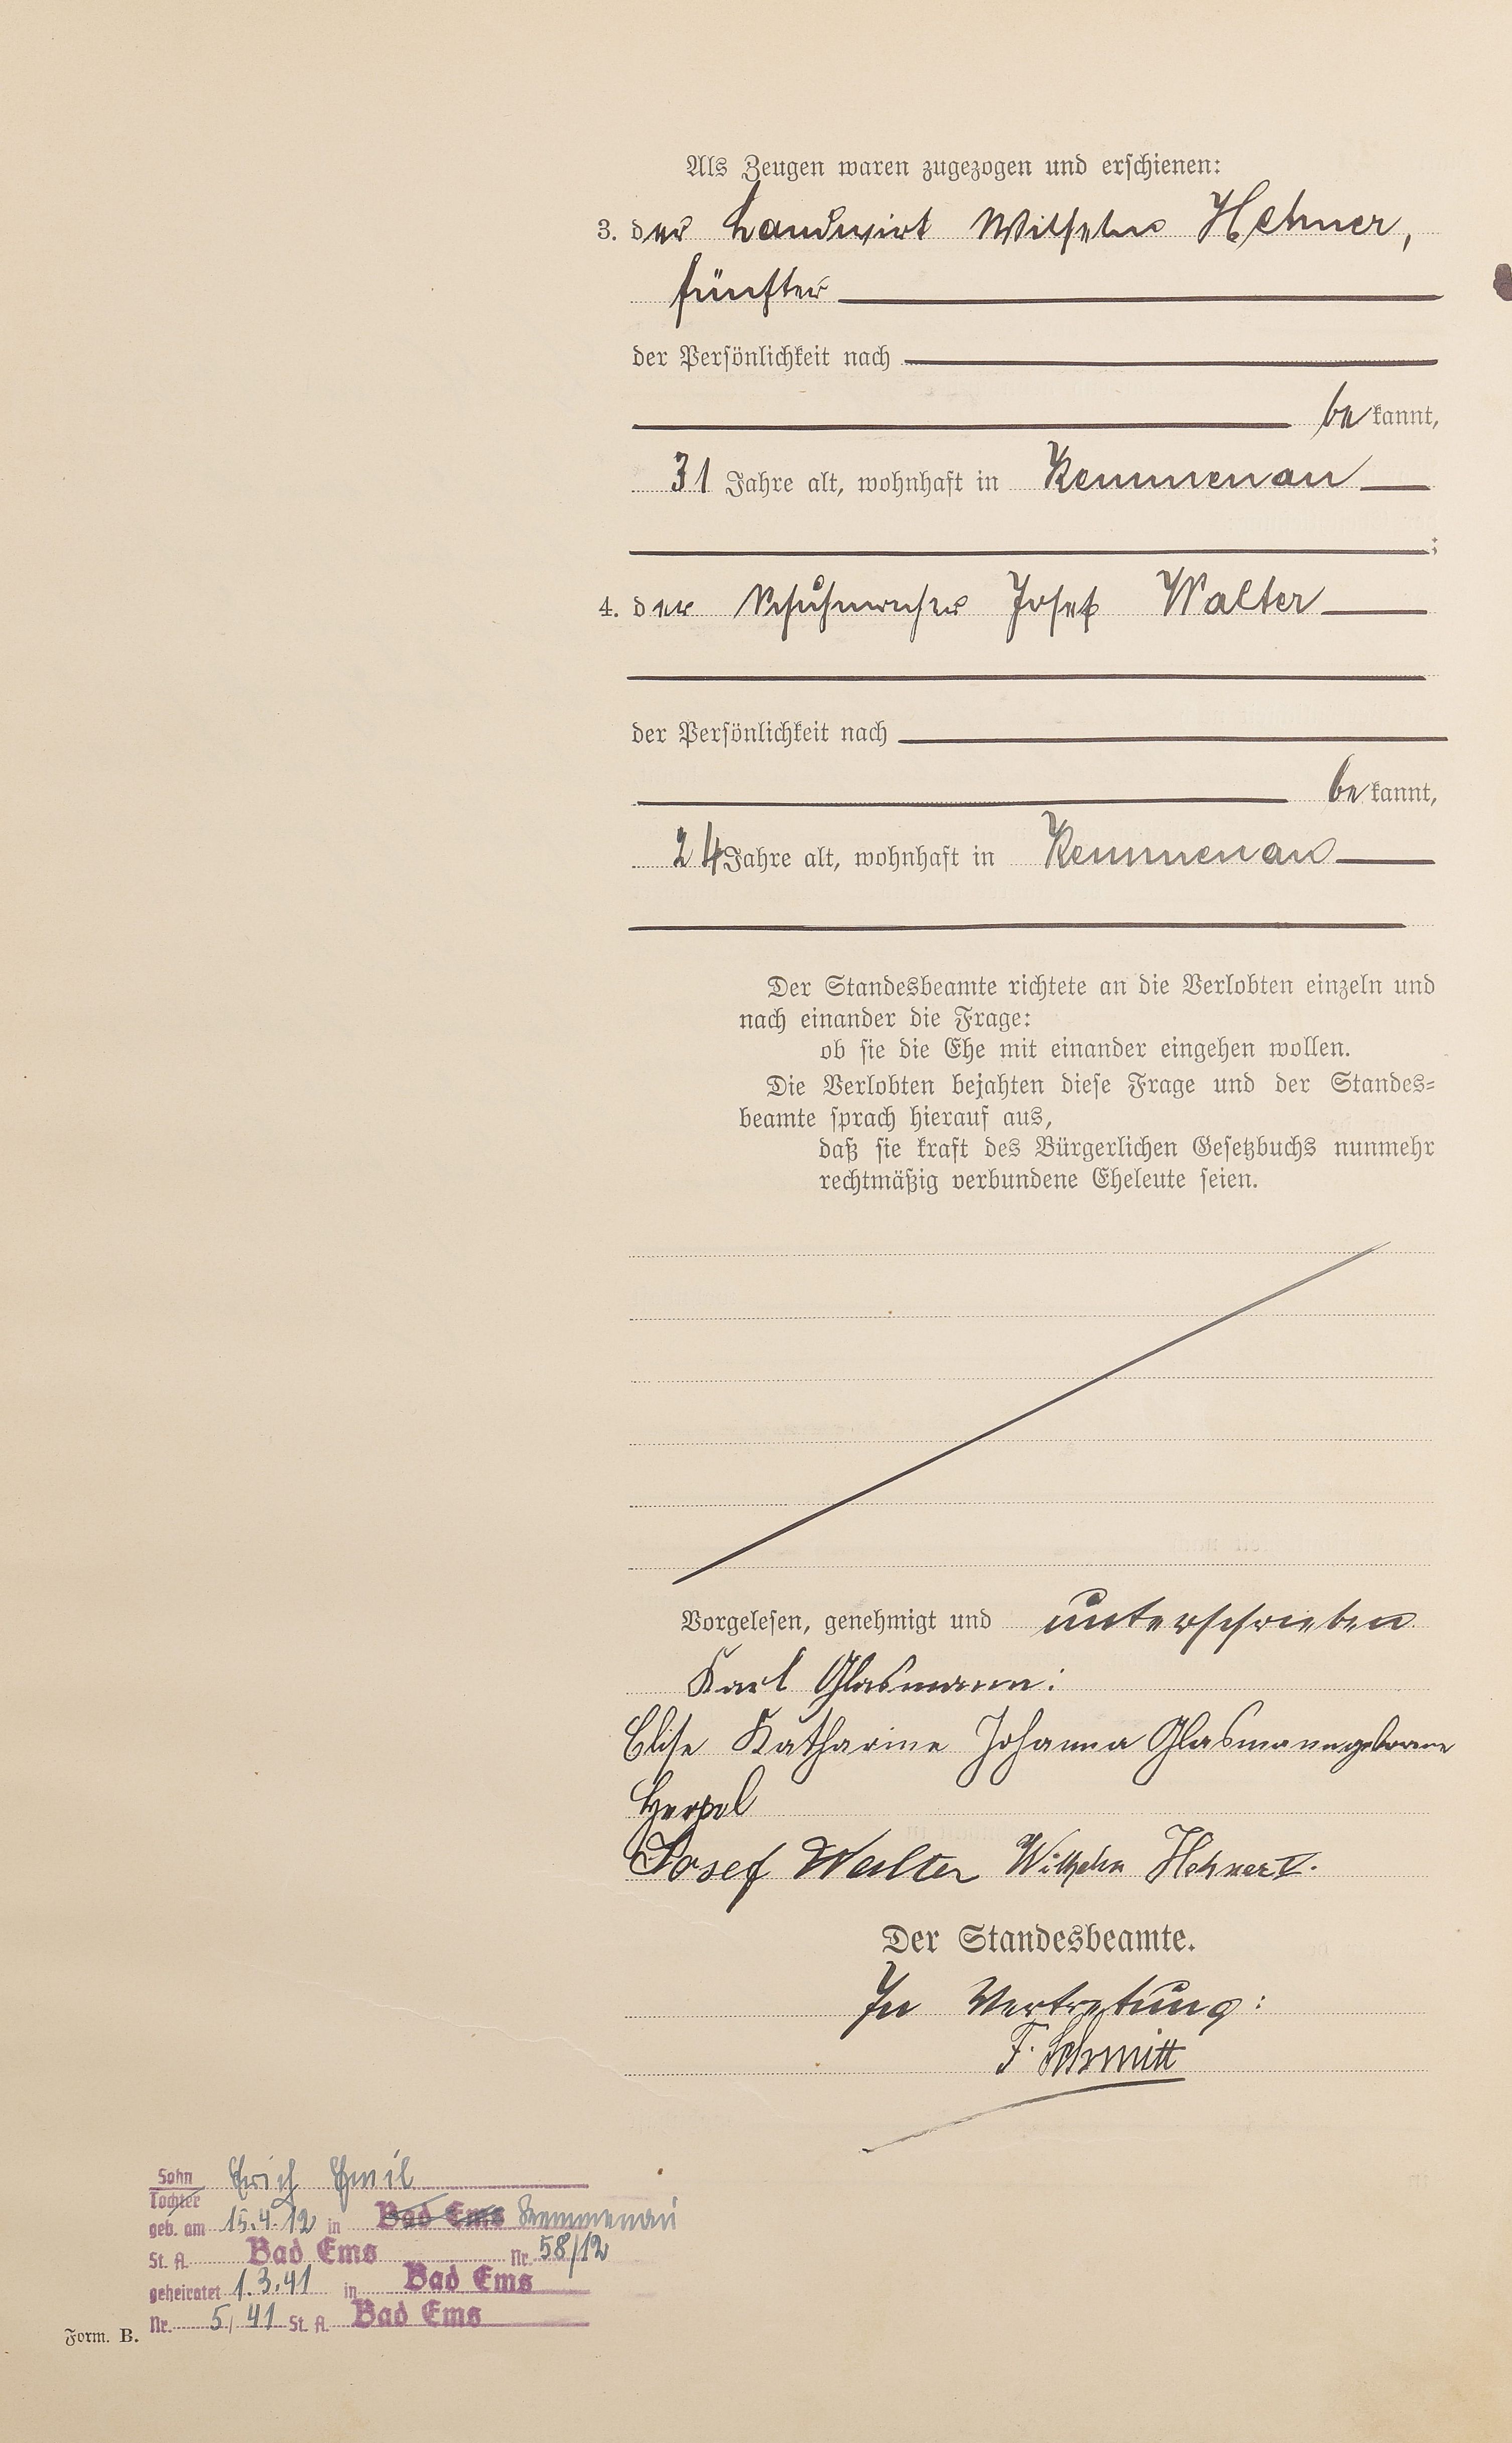 Als Zeugen waren zugezogen und erschienen:
3. der Landwirt Wilhelm Hehner,
fünfter
der Persönlichkeit nach
bekannt,
31 Jahre alt, wohnhaft in Kemmenau
;
4. der Schuhmacher Josef Walter
der Persönlichkeit nach
bekannt,
24 Jahre alt, wohnhaft in Kemmenau
Der Standesbeamte richtete an die Verlobten einzeln und
nach einander die Frage:
ob sie die Ehe mit einander eingehen wollen.
Die Verlobten bejahten diese Frage und der Standes-
beamte sprach hierauf aus,
daß sie kraft des Bürgerlichen Gesetzbuchs nunmehr
rechtmäßig verbundene Eheleute seien.
Vorgelesen, genehmigt und unterschrieben
Karl Glasmann:
Elise Katharine Johanna Glasmann geborene
Herpel
Josef Walter Wilhelm Hehner V.
Der Standesbeamte.
In Vertretung:
F. Schmitt
Sohn Erich Emil
Tochter
geb. am 15.4.12 in Bad Ems Kemmenau
St. A. Bad Ems Nr. 58/12
geheiratet 1.3.41 in Bad Ems
Nr. 5/41 St. A. Bad Ems
Form. B.